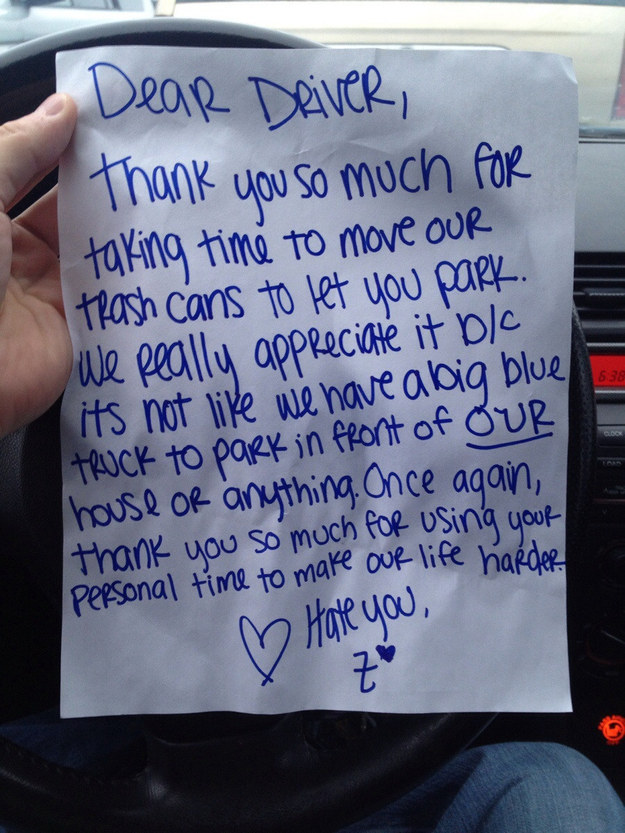 Dear Driver,
Thank you so much for
taking time to move our
trash cans to let you park.
We really appreciate it b/c
its not like we have a big blue
truck to park in front of OUR
house or anything. Once again,
thank you so much for using your
personal time to make our life harder.
♡ Hate you,
Z♥